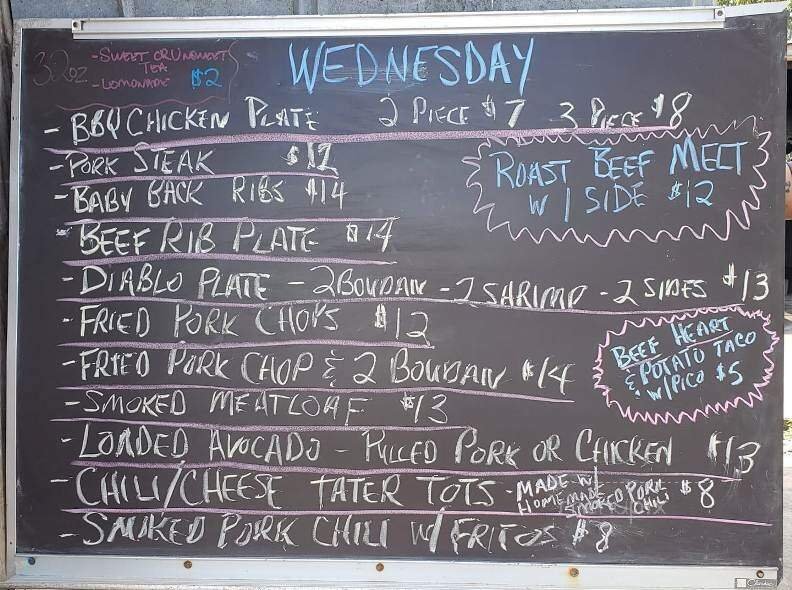 WEDNESDAY
32oz
-SWEET OR UNSWEET
TEA
-LEMONADE $2
- BBQ CHICKEN PLATE 2 PIECE $7 3 PIECE $8
-PORK STEAK $12
-BABY BACK RIBS $14
ROAST BEEF MELT
W/ SIDE $12
-BEEF RIB PLATE $14
-DIABLO PLATE - 2 BOUDAN - 2 SHRIMP - 2 SIDES $13
-FRIED PORK CHOPS $12
BEEF HEART
& POTATO TACO
W/PICO $5
-FRIED PORK CHOP & 2 BOUDAN $14
-SMOKED MEATLOAF $13
-LOADED AVOCADO - PULLED PORK OR CHICKEN $13
-CHILI/CHEESE TATER TOTS - MADE W/
HOMEMADE
SMOKED PORK
CHILI $8
-SMOKED PORK CHILI W/ FRITOS $8